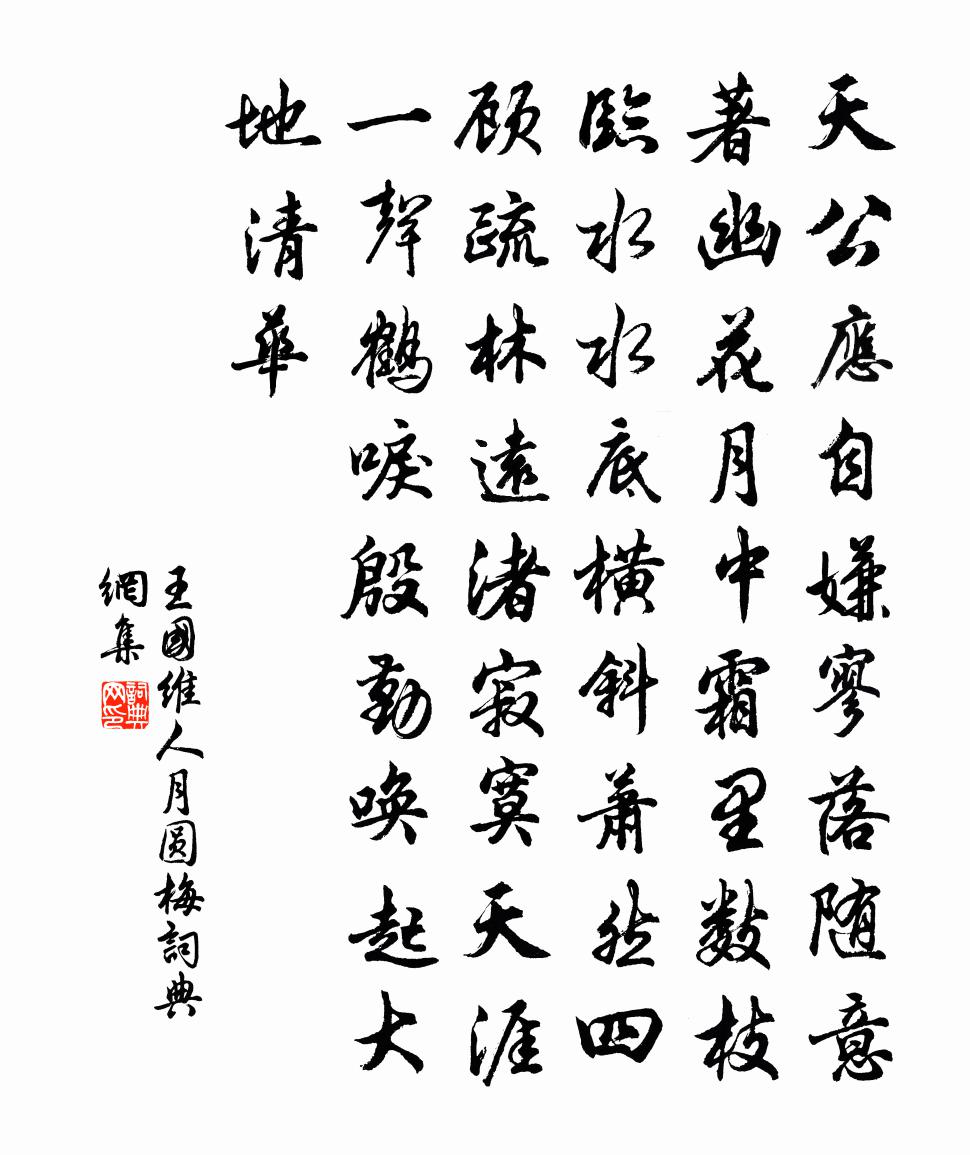 天公應自嫌寥落随意
著幽花月中霜里數枝
臨水水底横斜蕭然四
顾疏林遠渚寂寞天涯
一聲鶴唳殷勤唤起大
地清華
王國維人月圆梅詞典
網集
詞典
网印